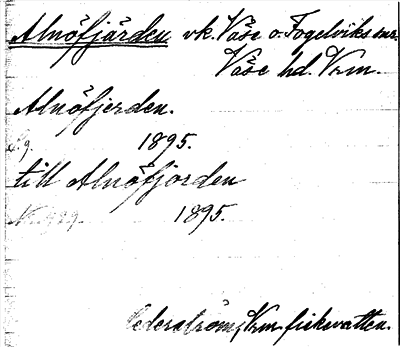 Alnöfjärden vk. Väse o. Fogelviks snr.
Väse hd. Vrm.
Alnöfjerden.
S. 9. 1895.
till Alnöfjorden
1895.
Cederström, Vrm. fiskevatten.